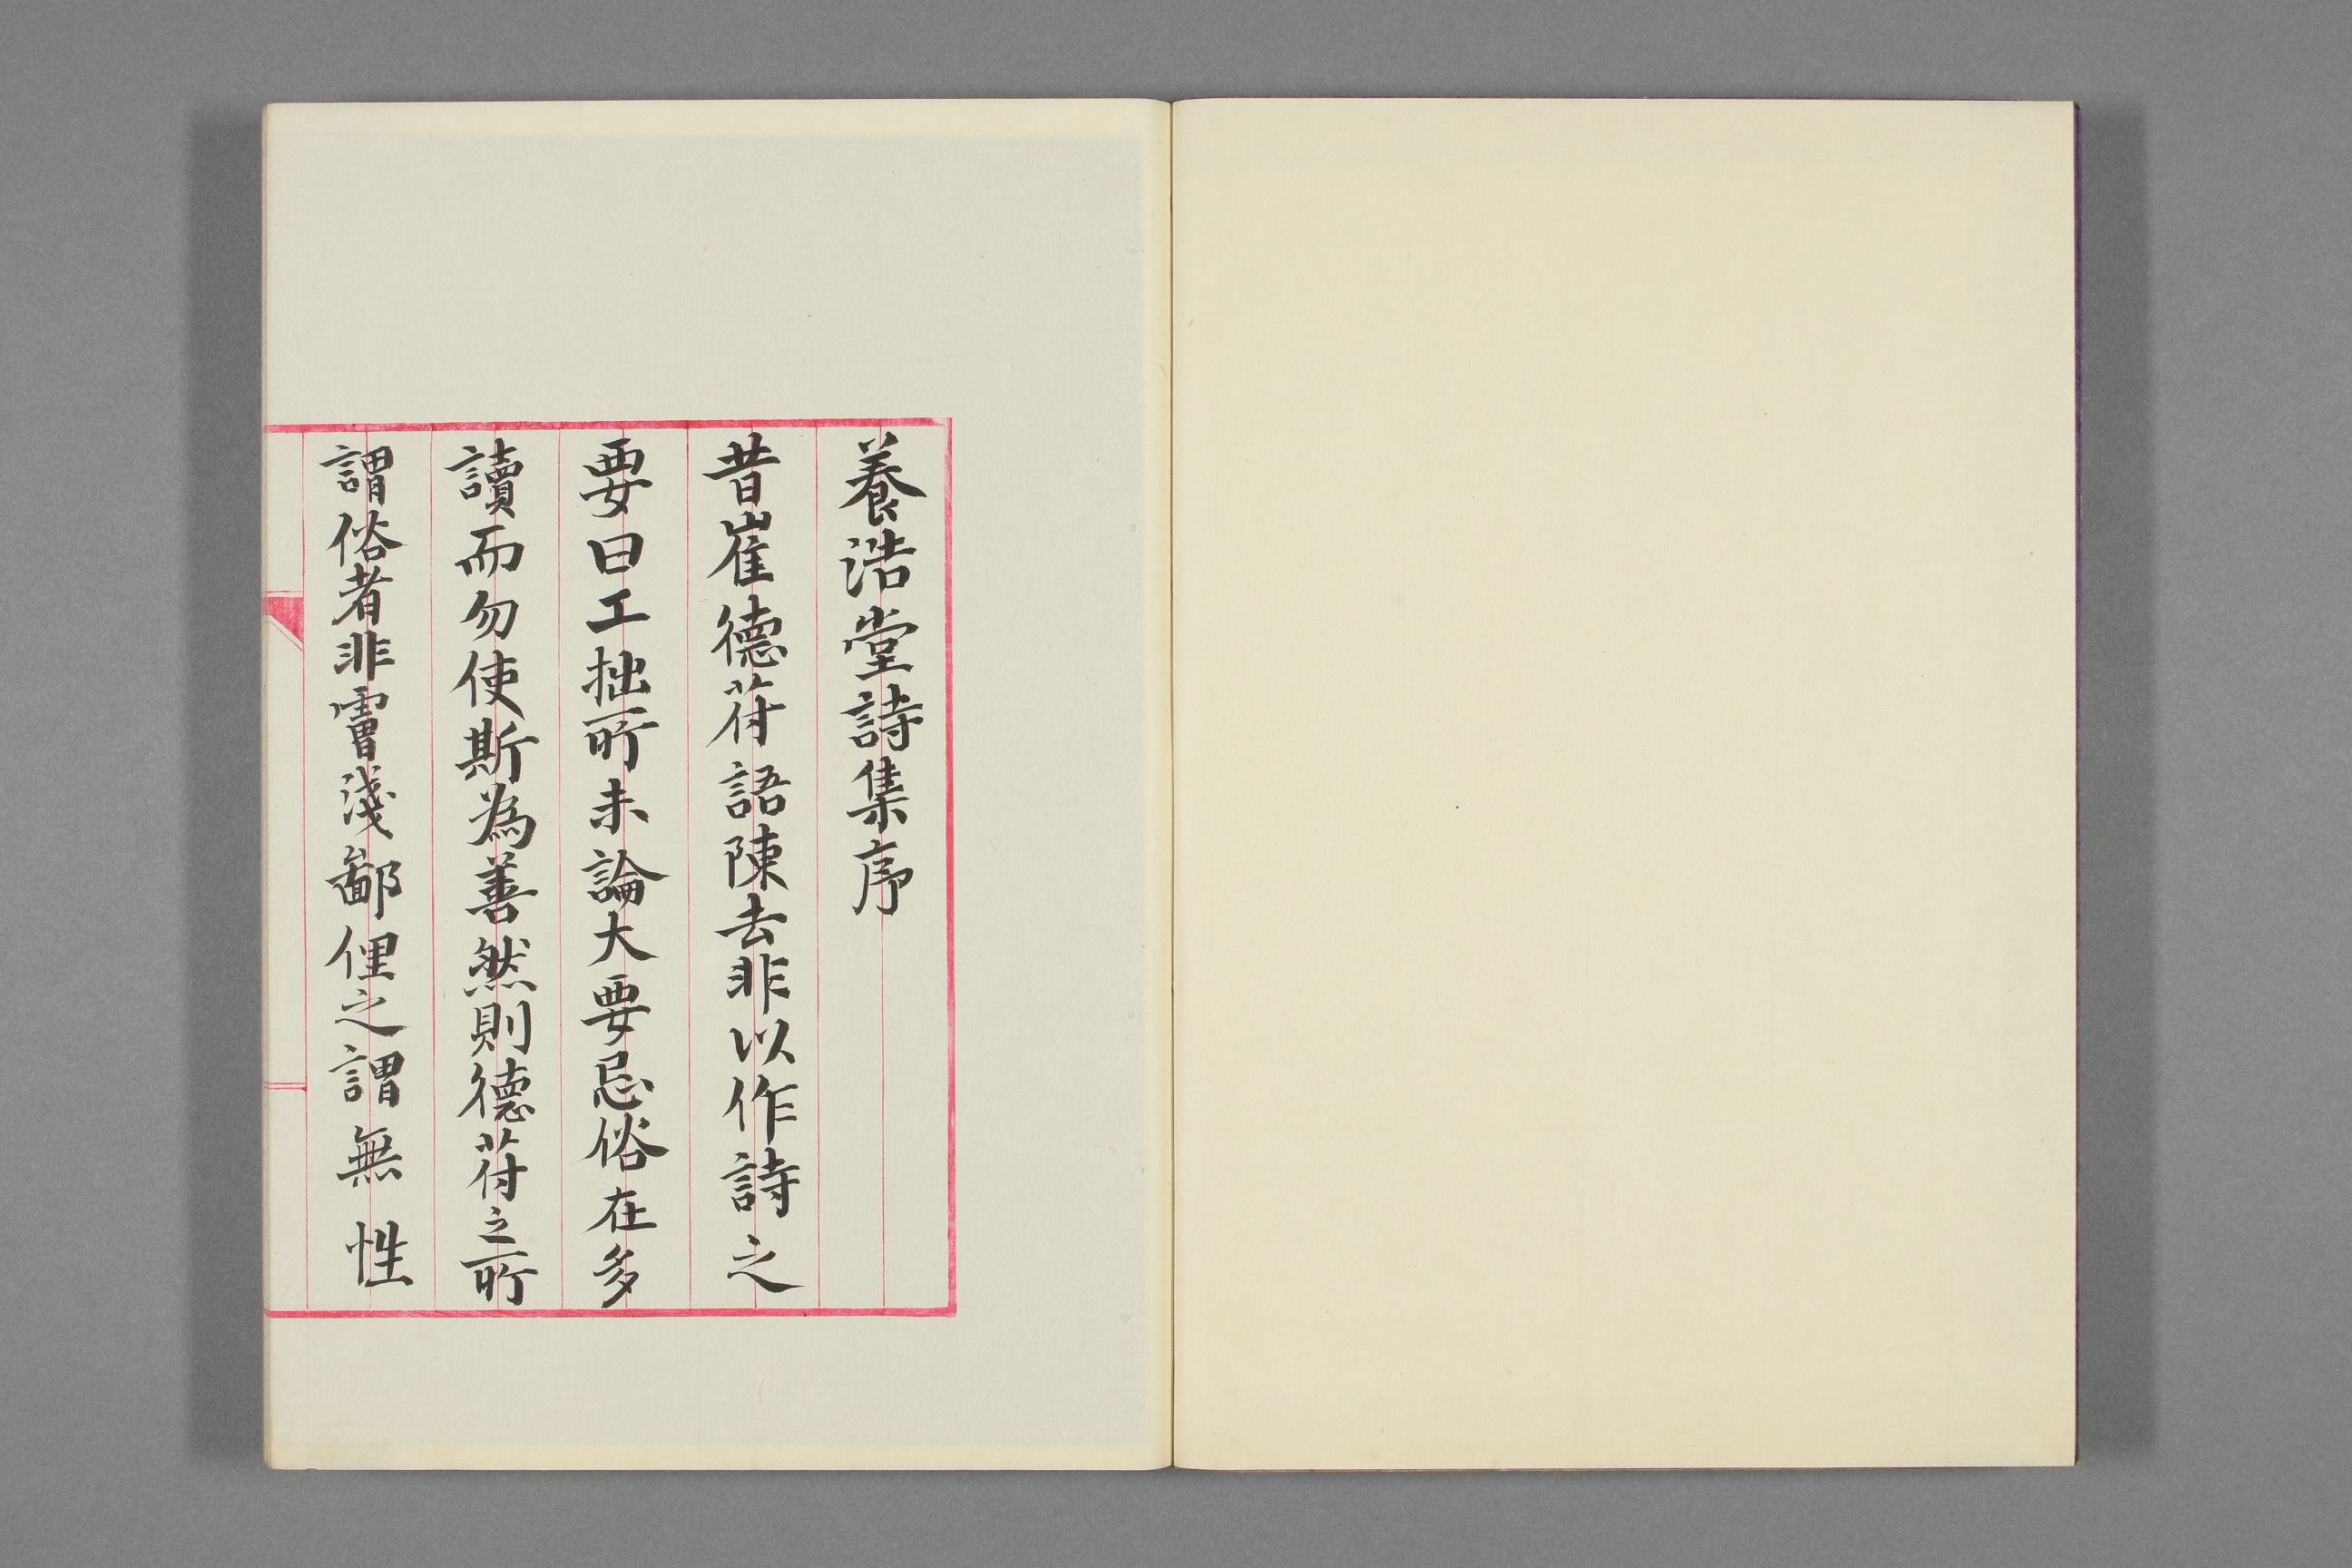 養浩堂詩集序
昔崔德苻語陳去非以作詩之
要曰工拙所未論大要忌俗在多
讀而勿使斯為善然則德苻之所
謂俗者非膚淺鄙俚之謂無性